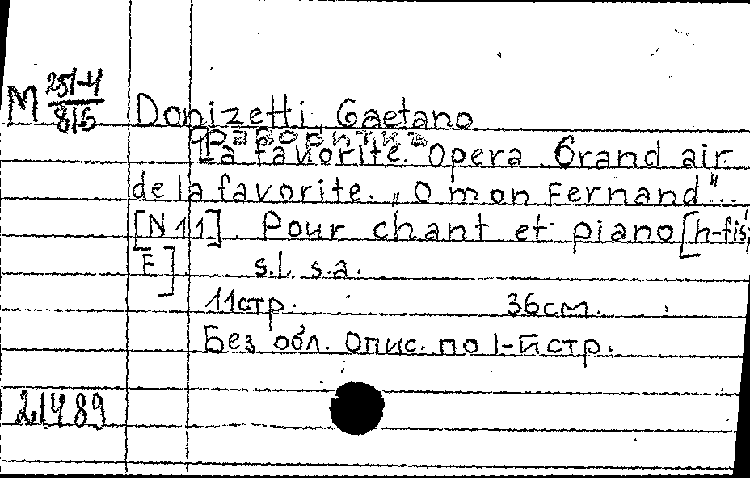 M 251-4/816
Donizetti Gaetano
Фаворитка
La favorite. Opera. Grand air
de la favorite. „O mon Fernand"..
[N 11]. Pour chant et piano [h-fis;
E]. s.l. s.a.
11стр. 36см.
Без обл. Опис. по 1-й стр.
21489